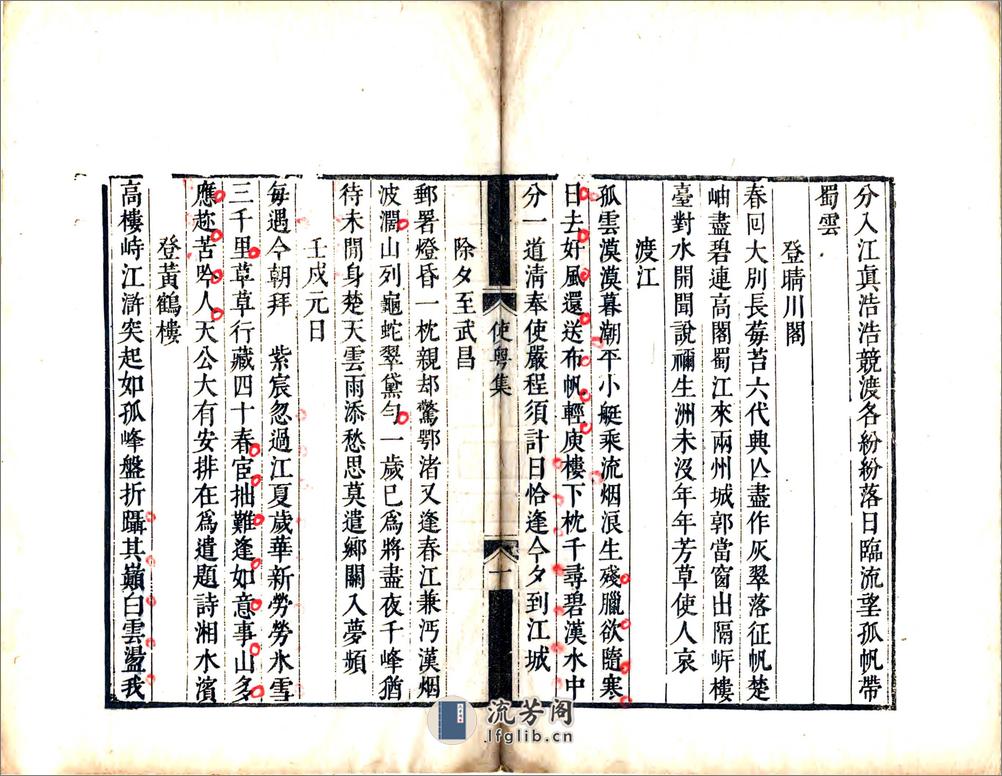 分入江眞浩浩競渡各紛紛落日臨流望孤帆帶
蜀雲
登晴川閣
春回大別長莓苔六代興亾盡作灰翠落征帆楚
岫盡碧連高閣蜀江來兩州城郭當窗出隔岍樓
臺對水開聞說禰生洲未沒年年芳草使人哀
渡江
孤雲漠漠暮潮平小艇乘流烟浪生殘臘欲隨寒
日去好風還送布帆輕庾樓下枕千尋碧漢水中
分一道清奉使嚴程須計日恰逢今夕到江城
除夕至武昌
郵署燈昏一枕親却驚鄂渚又逢春江兼沔漢烟
波濶山列龜蛇翠黛勻一歲已爲將盡夜千峰猶
待未閒身楚天雲雨添愁思莫遣鄉關入夢頻
壬戌元日
每遇今朝拜 紫宸忽過江夏歲華新勞勞水雪
三千里草草行藏四十春宦拙難逢如意事山多
應趂苦吟人天公大有安排在爲遣題詩湘水濱
登黃鶴樓
高樓峙江滸突起如孤峰盤折躡其巔白雲盪我
使粵集
一
流芳阁
lfglib.cn